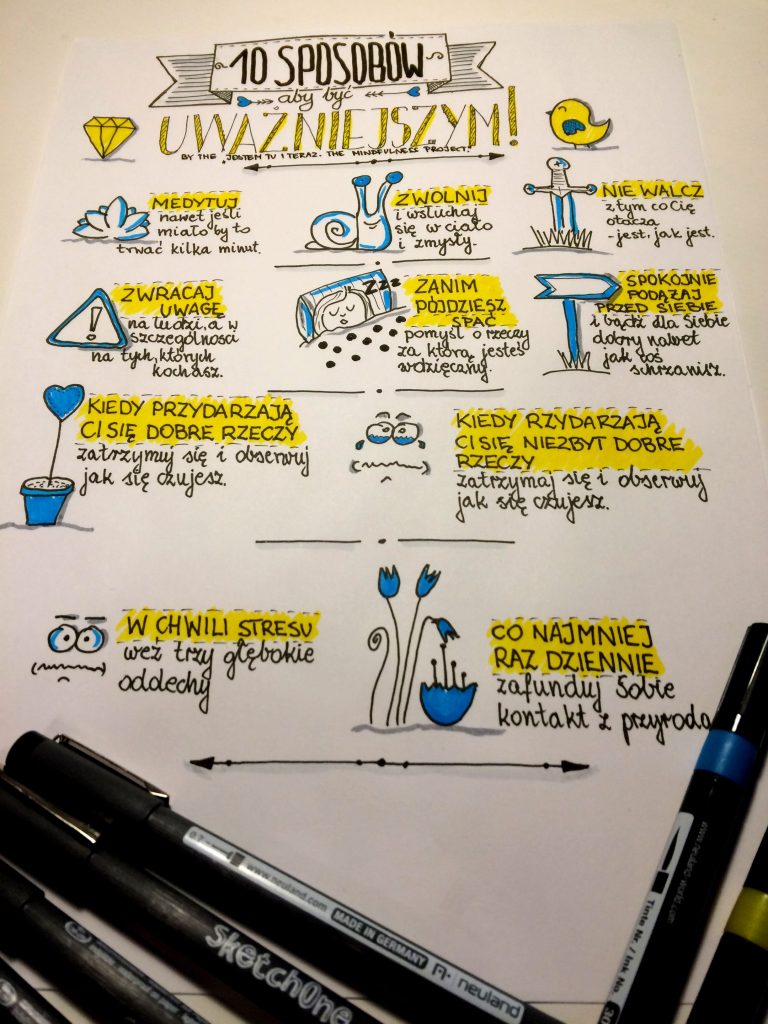 10 SPOSOBÓW
aby być
UWAŻNIEJSZYM!
BY THE "JESTEM TU I TERAZ. THE MINDFULNESS PROJECT."
MEDYTUJ
nawet jeśli
miało by to
trwać kilka minut.
ZWOLNIJ
i wsłuchaj
się w ciało
i zmysły.
NIE WALCZ
z tym co Cię
otacza
- jest, jak jest.
ZWRACAJ
UWAGĘ
na ludzi, a w
szczególności
na tych, których
kochasz.
zzz
ZANIM
PÓJDZIESZ
SPAĆ
pomyśl o rzeczy
za którą jesteś
wdzięczny.
SPOKOJNIE
PODĄŻAJ
PRZED SIEBIE
i bądź dla Siebie
dobry nawet
jak coś
schrzanisz.
KIEDY PRZYDARZAJĄ
CI SIĘ DOBRE RZECZY
zatrzymuj się i obserwuj
jak się czujesz.
KIEDY RZYDARZAJĄ
CI SIĘ NIEZBYT DOBRE
RZECZY
zatrzymaj się i obserwuj
jak się czujesz.
W CHWILI STRESU
weź trzy głębokie
oddechy
CO NAJMNIEJ
RAZ DZIENNIE
zafunduj Sobie
kontakt z przyrodą
0.7 www.neuland.com MADE IN GERMANY neuland
SketchOne
Tinte Nr. / Ink No.